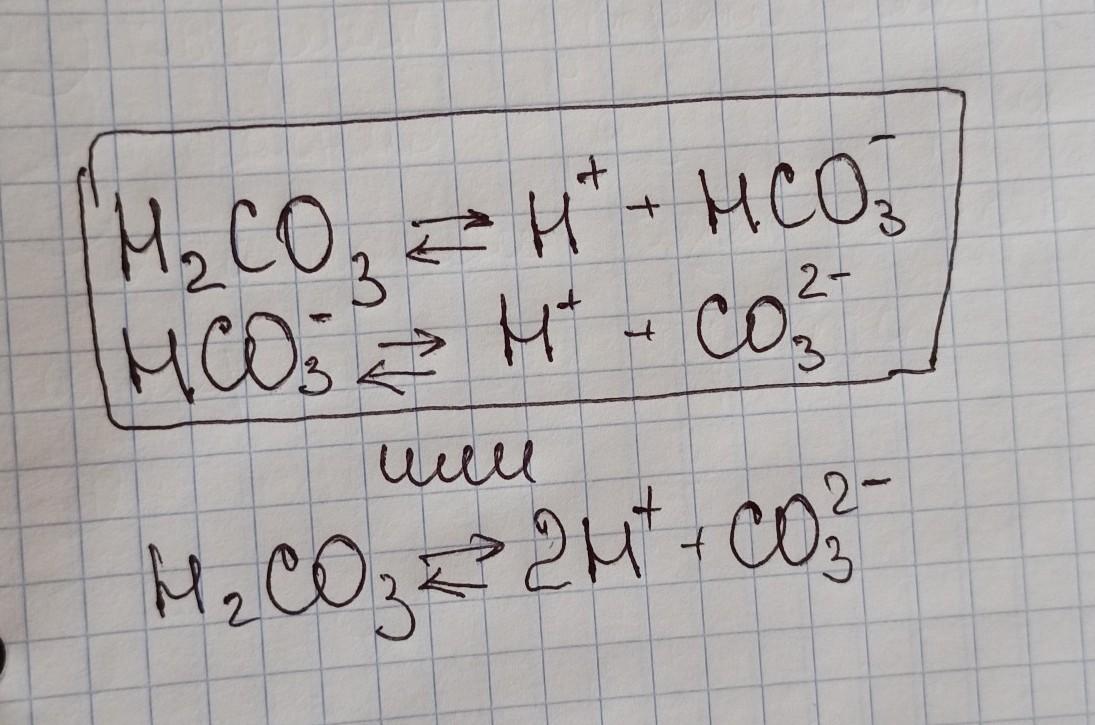 H₂CO₃ ⇄ H⁺ + HCO₃⁻
HCO₃⁻ ⇄ H⁺ + CO₃²⁻
или
H₂CO₃ ⇄ 2H⁺ + CO₃²⁻